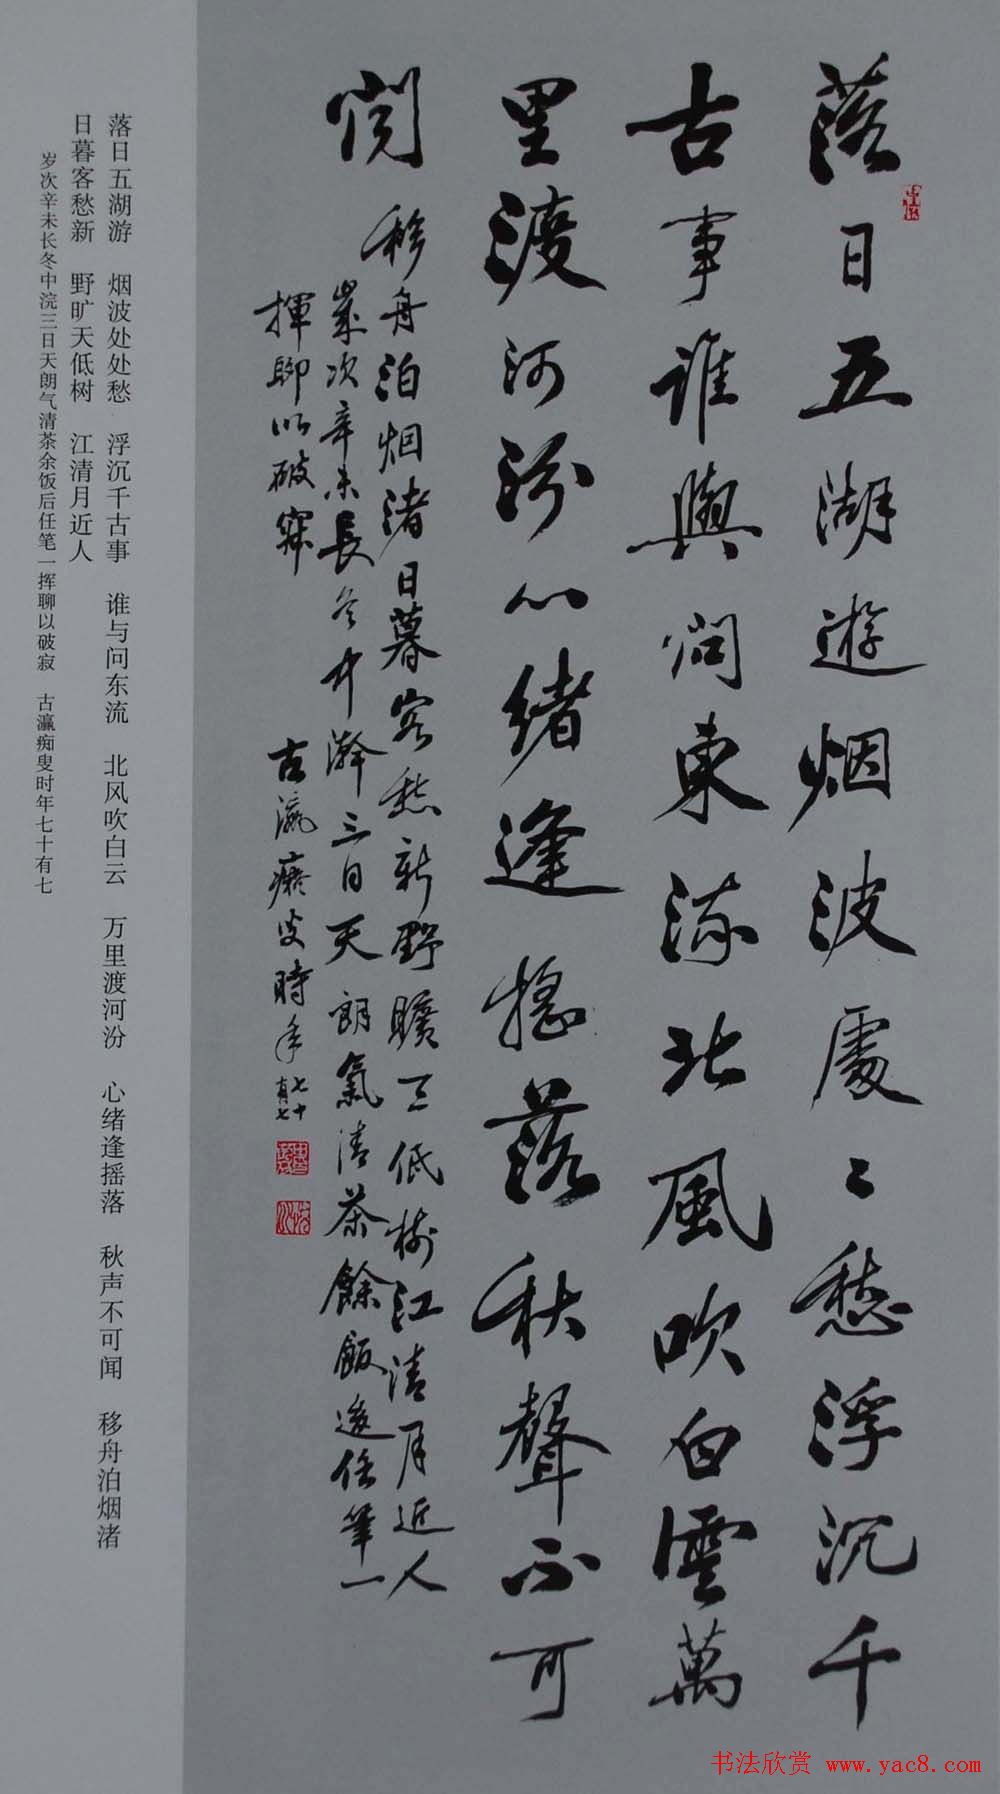 落日五湖遊烟波處〻愁浮沉千
古事誰與問東流北風吹白雲萬
里渡河汾心緒逢摇落秋聲不可
闻移舟泊烟渚日暮客愁新野曠天低樹江清月近人
歲次辛未長冬中澣三日天朗氣清茶餘飯後任筆一
揮聊以破寂 古瀛癡叟時年七十有七
落日五湖游 烟波处处愁 浮沉千古事 谁与问东流 北风吹白云 万里渡河汾 心绪逢摇落 秋声不可闻 移舟泊烟渚
日暮客愁新 野旷天低树 江清月近人
岁次辛未长冬中浣三日天朗气清茶余饭后任笔一挥聊以破寂 古瀛痴叟时年七十有七
书法欣赏 www.yac8.com